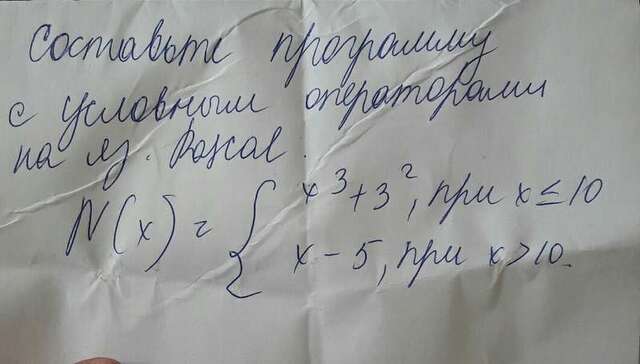 Составьте программу
с условным операторами
на яз. Pascal.
N(x) = { x³+3², при x ≤ 10
x - 5, при x > 10.